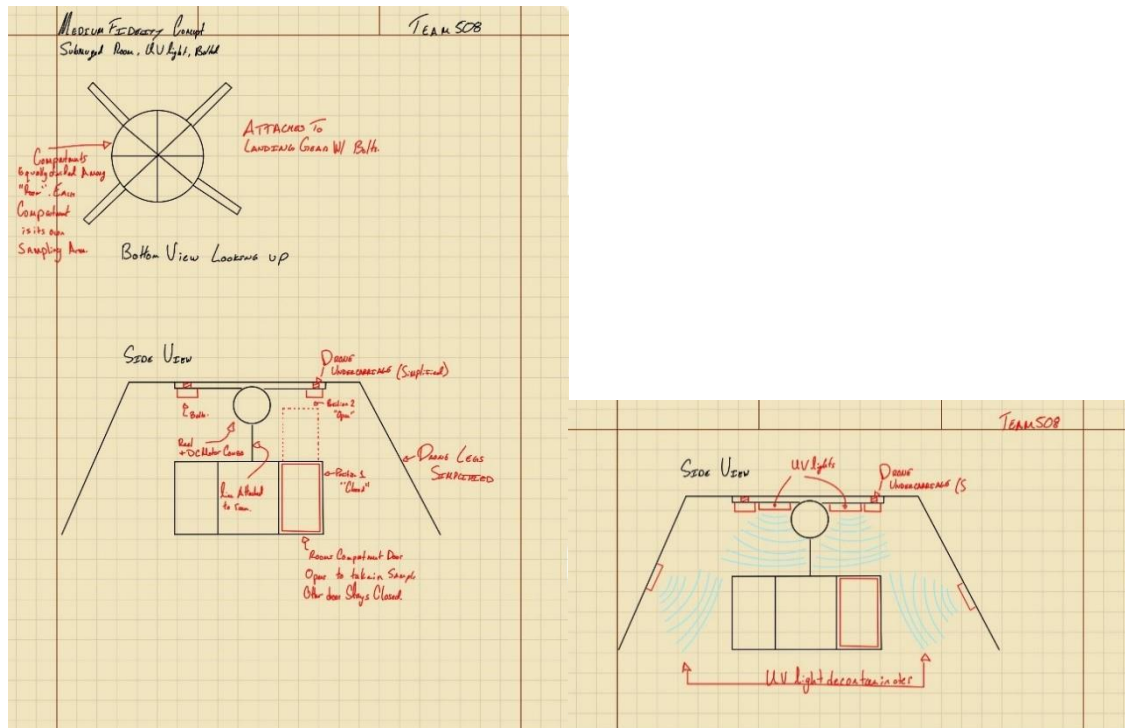 MEDIUM FIDELITY Concept
TEAM 508
Submerged Room, UV light, Bolted
ATTACHED TO
LANDING GEAR W/ Bolts.
Compartments
Equally Among
"Room". Each
Compartment
is its own
Sampling Area.
Bottom View Looking up
SIDE VIEW
DRONE
UNDERCARRIAGE (Simplified)
Bolts.
Position 2
"Open"
Reel
+ DC Motor
DRONE LEGS
SIMPLIFIED
Position 1
"Closed"
Line Attached
to room.
Rooms Compartment Door
Opens to take in Sample
Other door Stays Closed.
TEAM 508
SIDE VIEW
UV lights
DRONE
UNDERCARRIAGE (S
UV light decontaminates